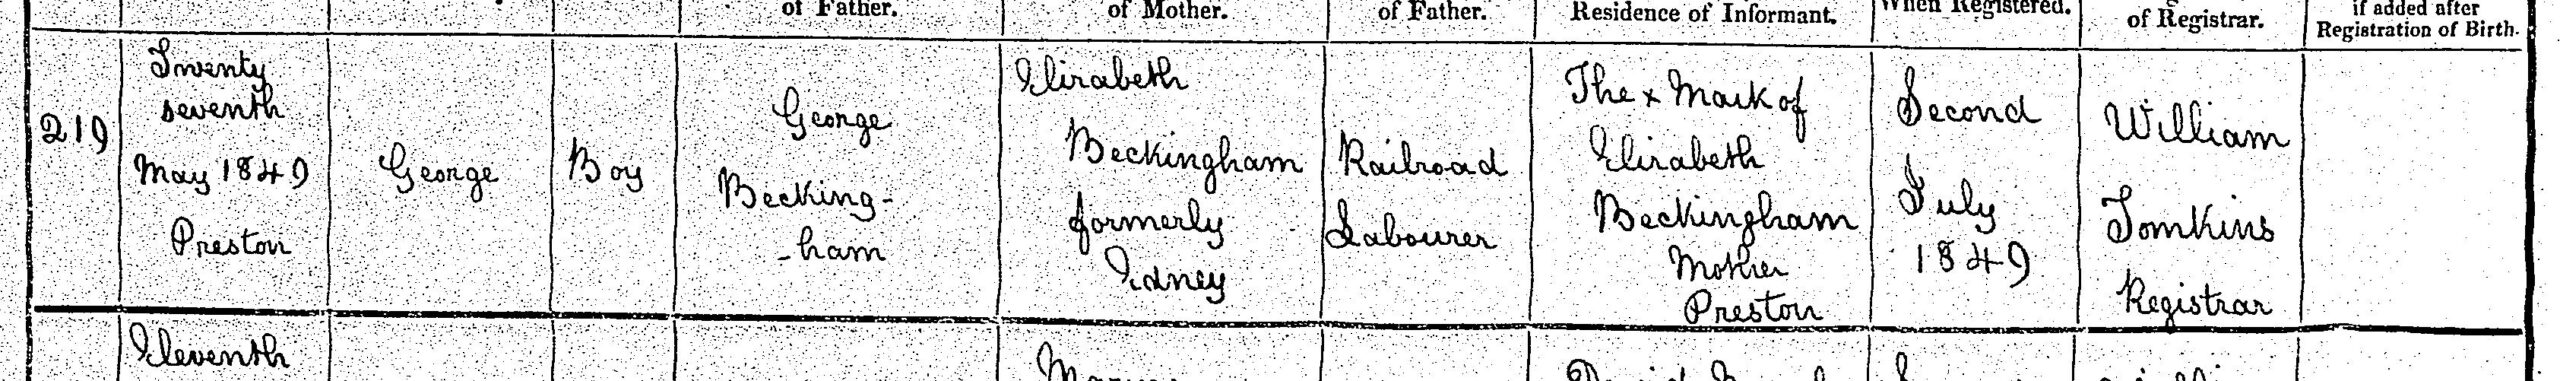 of Father.
of Mother.
of Father.
Residence of Informant.
When Registered.
of Registrar.
if added after
Registration of Birth.
219
Twenty
seventh
May 1849
Preston
George
Boy
George
Becking-
-ham
Elizabeth
Beckingham
formerly
Edney
Railroad
Labourer
The x Mark of
Elizabeth
Beckingham
Mother
Preston
Second
July
1849
William
Tomkins
Registrar
Eleventh